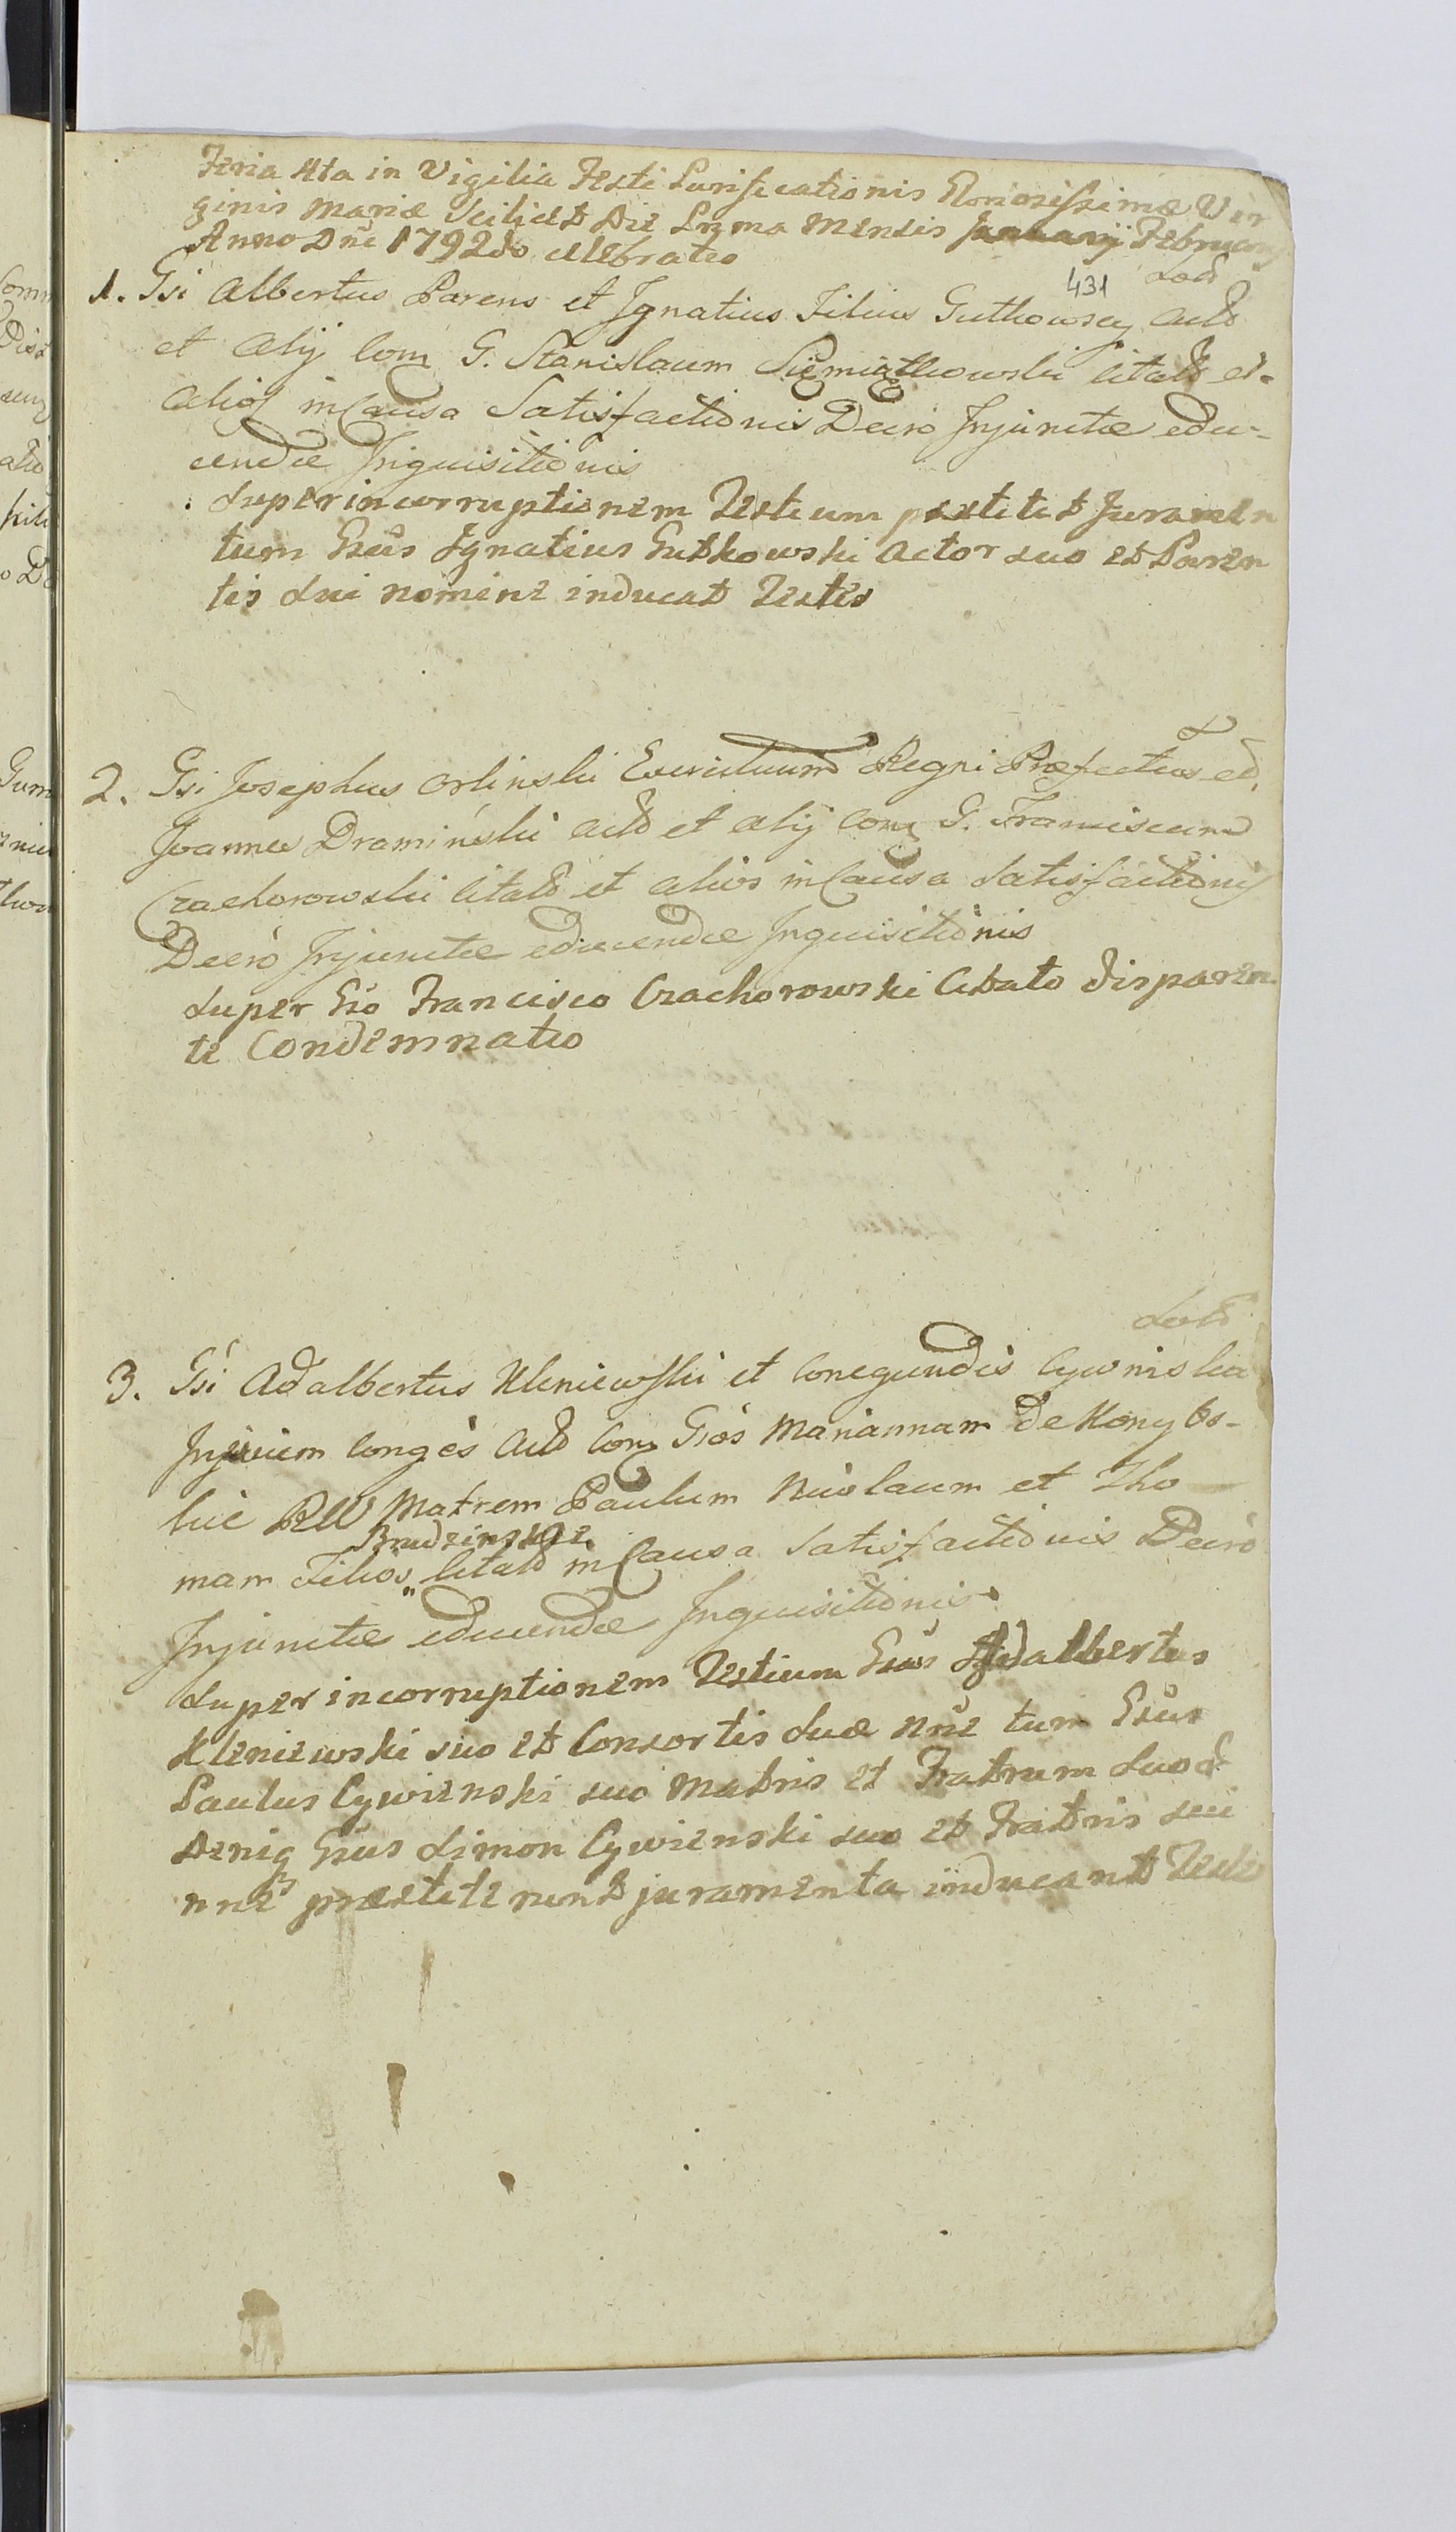 Feria 4ta in Vigilia Festi Purificationis Gloriosissimæ Vir
ginis Mariæ Scilicet Die Prima Mensis Januarij February
Anno Dni 1792do celebratio
431
1. Gsi Albertus Parens et Ignatius Filius Gutkowscy Act
et Alij Con G. Stanislaum Siemiątkowski Citat et
Alios in Causa Satisfactionis Decro Injunctæ edu-
cendæ Inquisitionis
Super incorruptionem Testium prestitit Juramen
tum Gsus Ignatius Gutkowski Actor suo et Paren
tis sui nomine inducat Testes
2. Gsi Josephus Orlinski Exercituum Regni Præfectus et
Joannes Dramiński Act et Alij Con G. Franciscum
Czachorowski Citat et Alios in Causa Satisfactionis
Decro Injunctæ educendæ Inquisitionis
Super Gso Francisco Czachorowski Citato disparen
te Condemnatio
3. Gsi Adalbertus Kleniewski et Conegundis Cywnska
Injuicem Conges Act Con Gsos Mariannam de
Matrem Paulum Nicolaum et Tho
mam Filios Citat in Causa Satisfactionis Decro
Injunctæ educendæ Inquisitionis
Super incorruptionem Testium Gsus Adalbertus
Kleniewski suo et Consortis suæ nne tum Gsus
Paulus Cywienski suo Matris et Fratrum
Deniq Gsus Simon Cywienski suo et Fratris sui
nne præstiterunt juramenta inducant Testes